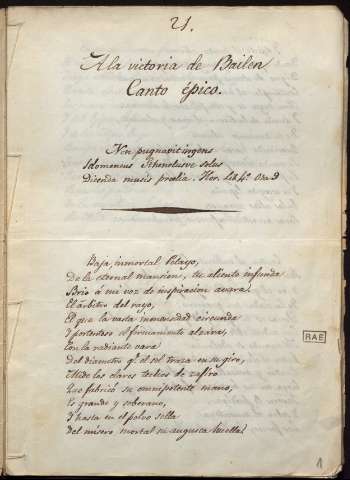 21.
A la victoria de Bailén
Canto épico.
Non pugnavit ingens
Idomeneus Sthenelusve solus
Dicenda musis prœlia. Hor. Lib. 4º Oda 9
Baja, inmortal Pelayo,
De la eternal mansion, tu aliento infunda
Brio á mi voz de inspiracion avara.
El árbitro del rayo,
El que la vasta inmensidad circunda
Y portentoso el firmamento alzára,
Con la radiante vara
Del diametro q.e el sol traza en su giro,
Mide los claros techos de zafir
Que fabricó su omnipotente mano,
Es grande y soberano,
Y hasta en el polvo sella
Del misero mortal su augusta huella.
RAE
1